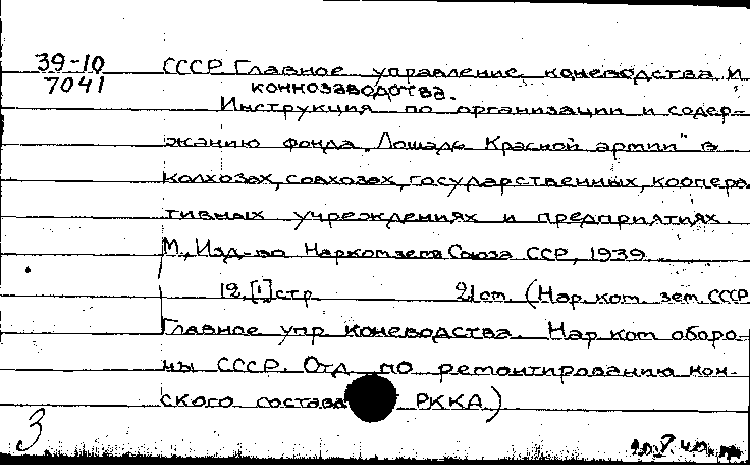 39-10
7041
СССР. Главное управление коневодства и
коннозаводства.
Инструкция по организации и содер-
жанию фонда „Лошадь Красной армии" в
колхозах, совхозах, государственных, коопера-
тивных учреждениях и предприятиях.
М., Изд-во Наркомзема Союза ССР, 1939.
12, [1] стр. 21 см. (Нар. ком. зем. СССР
Главное упр. коневодства. Нар. ком. оборо-
ны СССР. Отд. по ремонтированию кон-
ского состава РККА)
3